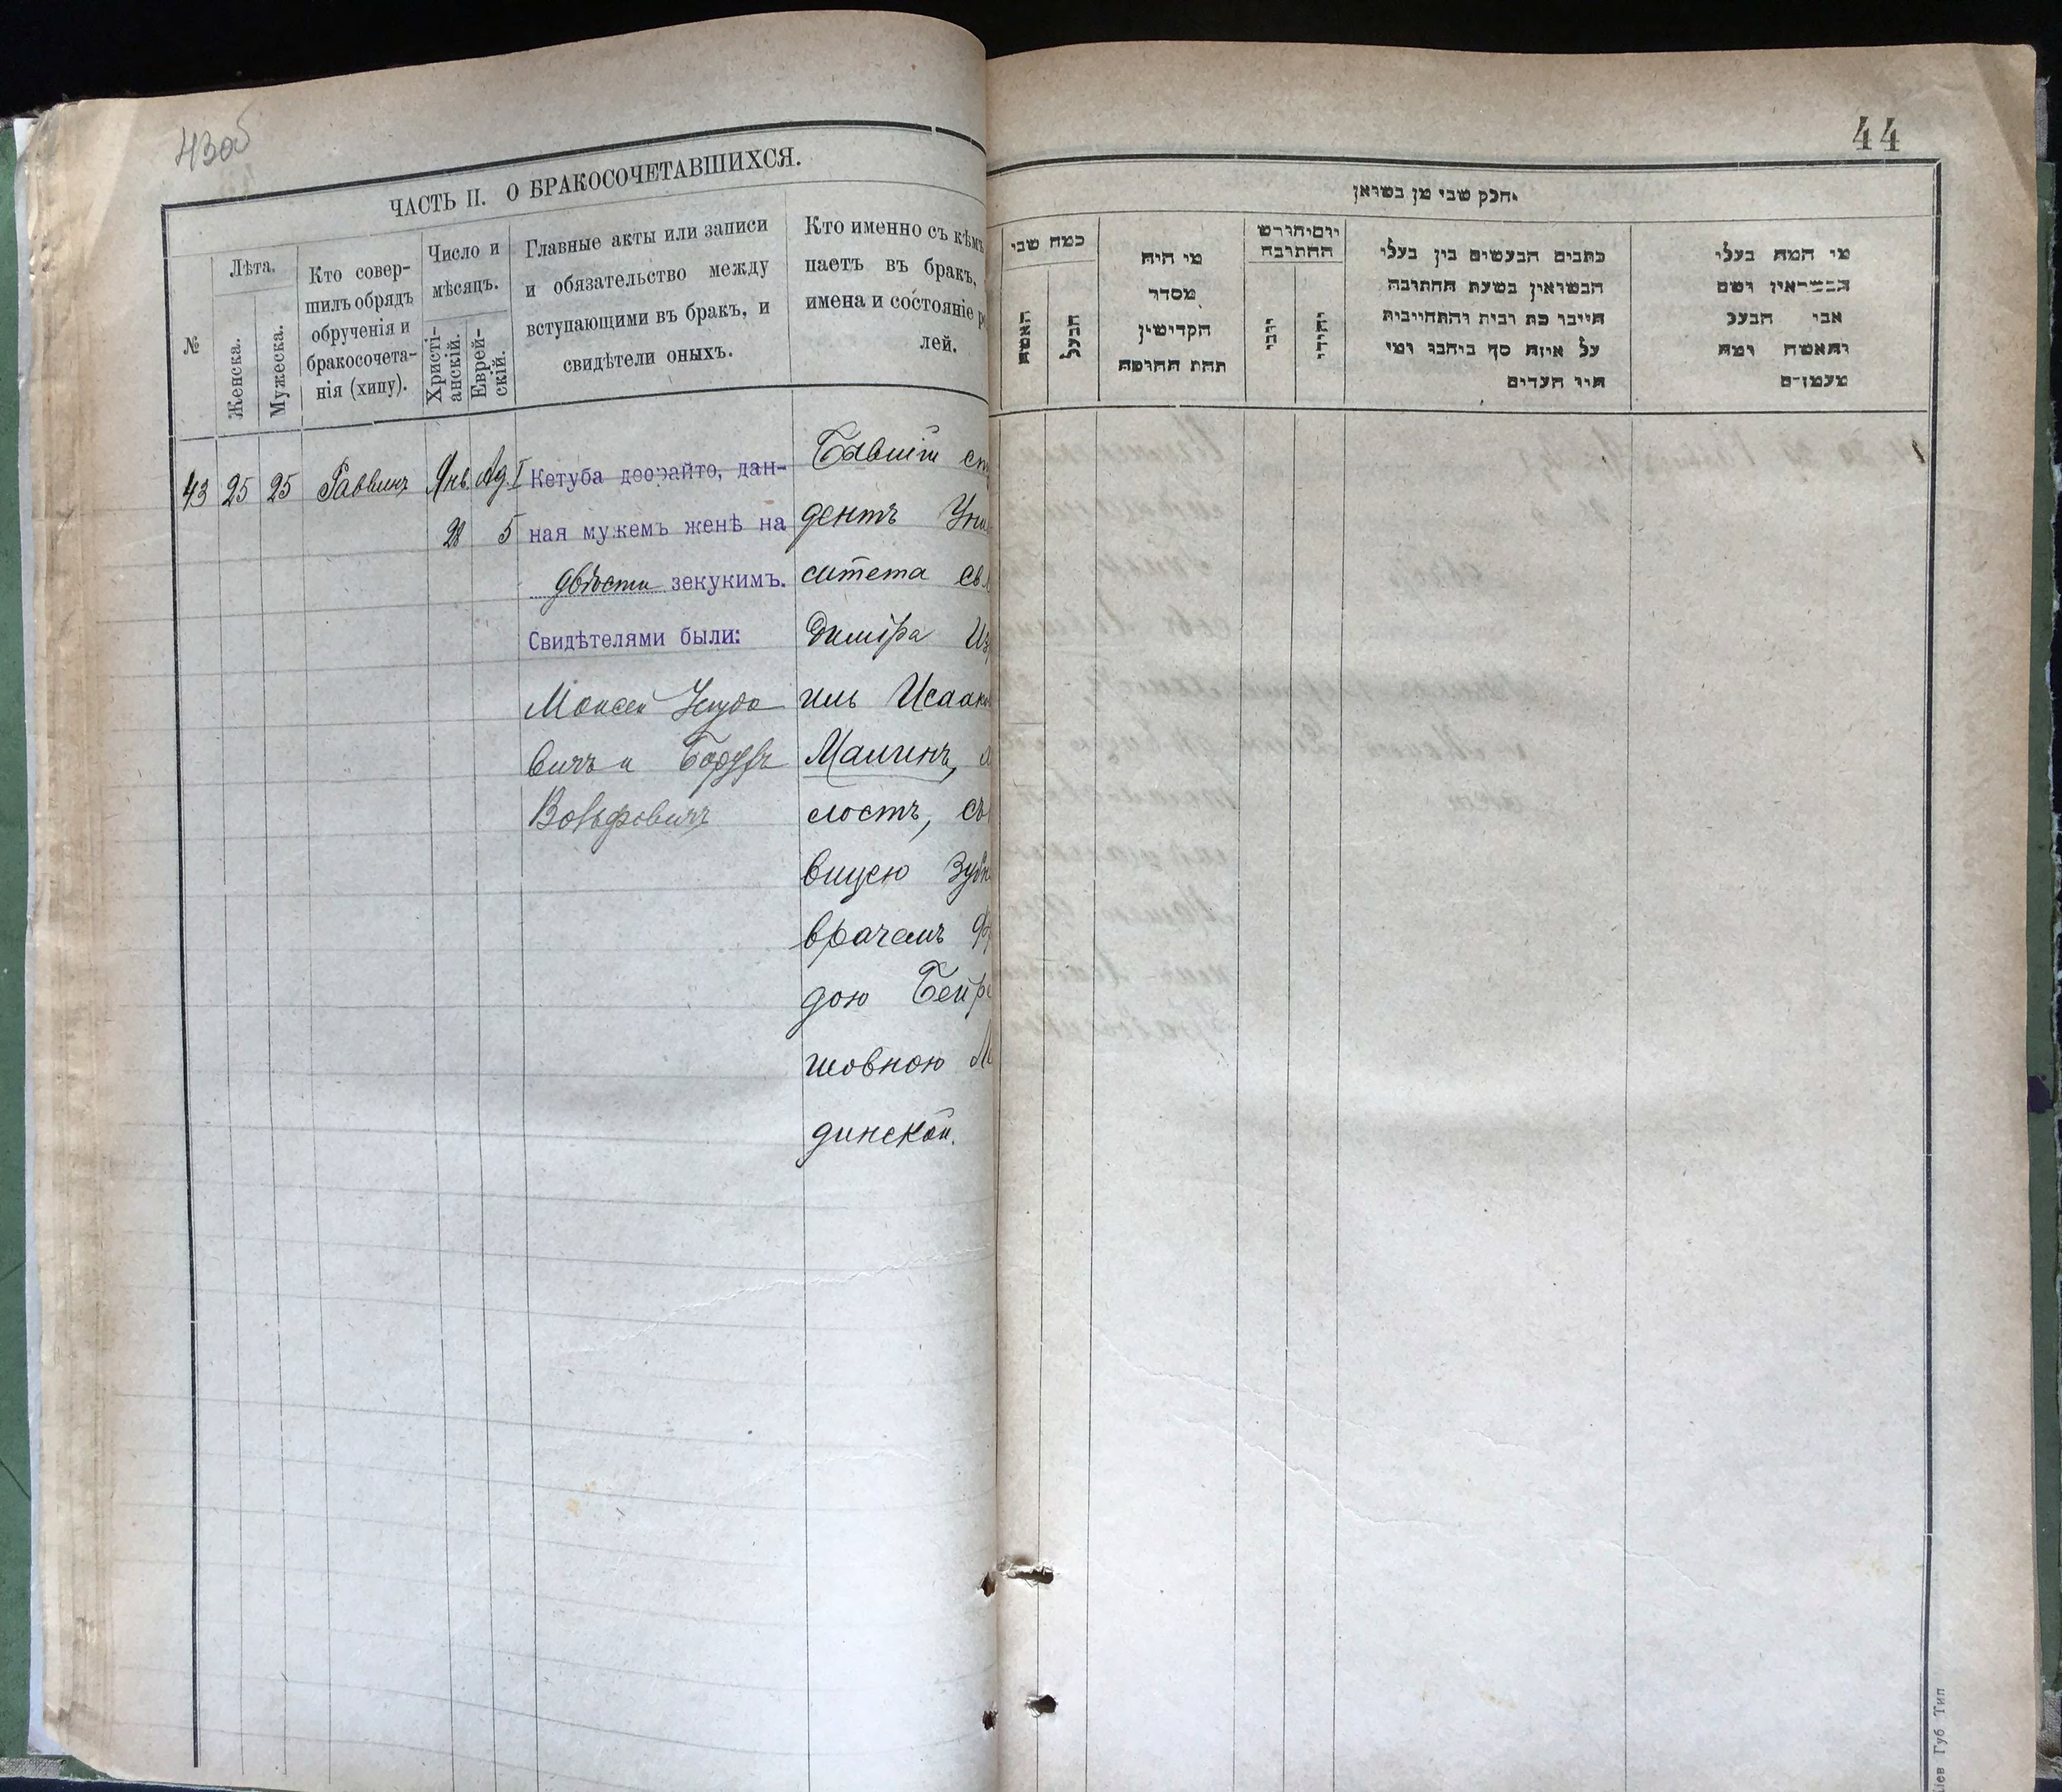 43об
ЧАСТЬ II. О БРАКОСОЧЕТАВШИХСЯ.
№
Лѣта.
Женска.
Мужеска.
Кто совер-
шилъ обрядъ
обрученія и
бракосочета-
нія (хипу).
Число и
мѣсяцъ.
Христі-
анскій.
Еврей-
скій.
Главные акты или записи
и обязательство между
вступающими въ бракъ, и
свидѣтели оныхъ.
Кто именно съ кѣмъ
паетъ въ бракъ,
имена и состояніе р
лей.
43 25 25 Раввинъ Янв. Ад. I
28 5
Кетуба деорайто, дан-
ная мужемъ женѣ на
двѣсти зекукимъ.
Свидѣтелями были:
Моисей
вичъ и
Вольфовичъ
Бывшій ст
дентъ Уни
ситета св
димiра Из
иль Исаак
Малинъ,
лостъ, съ
вицею Зубн
врачемъ Ф
дою Бейр
шовною М
динской.
44
חלק שני מן נשואין
כמה שני
האשה
הבעל
מי היה
מסדר
הקדישין
תחת החופה
יום וחודש
החתונה
יהודי
כתבים הנעשים בין בעלי
הנשואין בשעת החתונה
היינו כת ובית והתחייבות
על איזה סך ביחבו ומי
היו העדים
מי המה בעלי
הנשואין ושם
אבי הבעל
והאשה ומה
מעמדם
Кіев Губ Тип